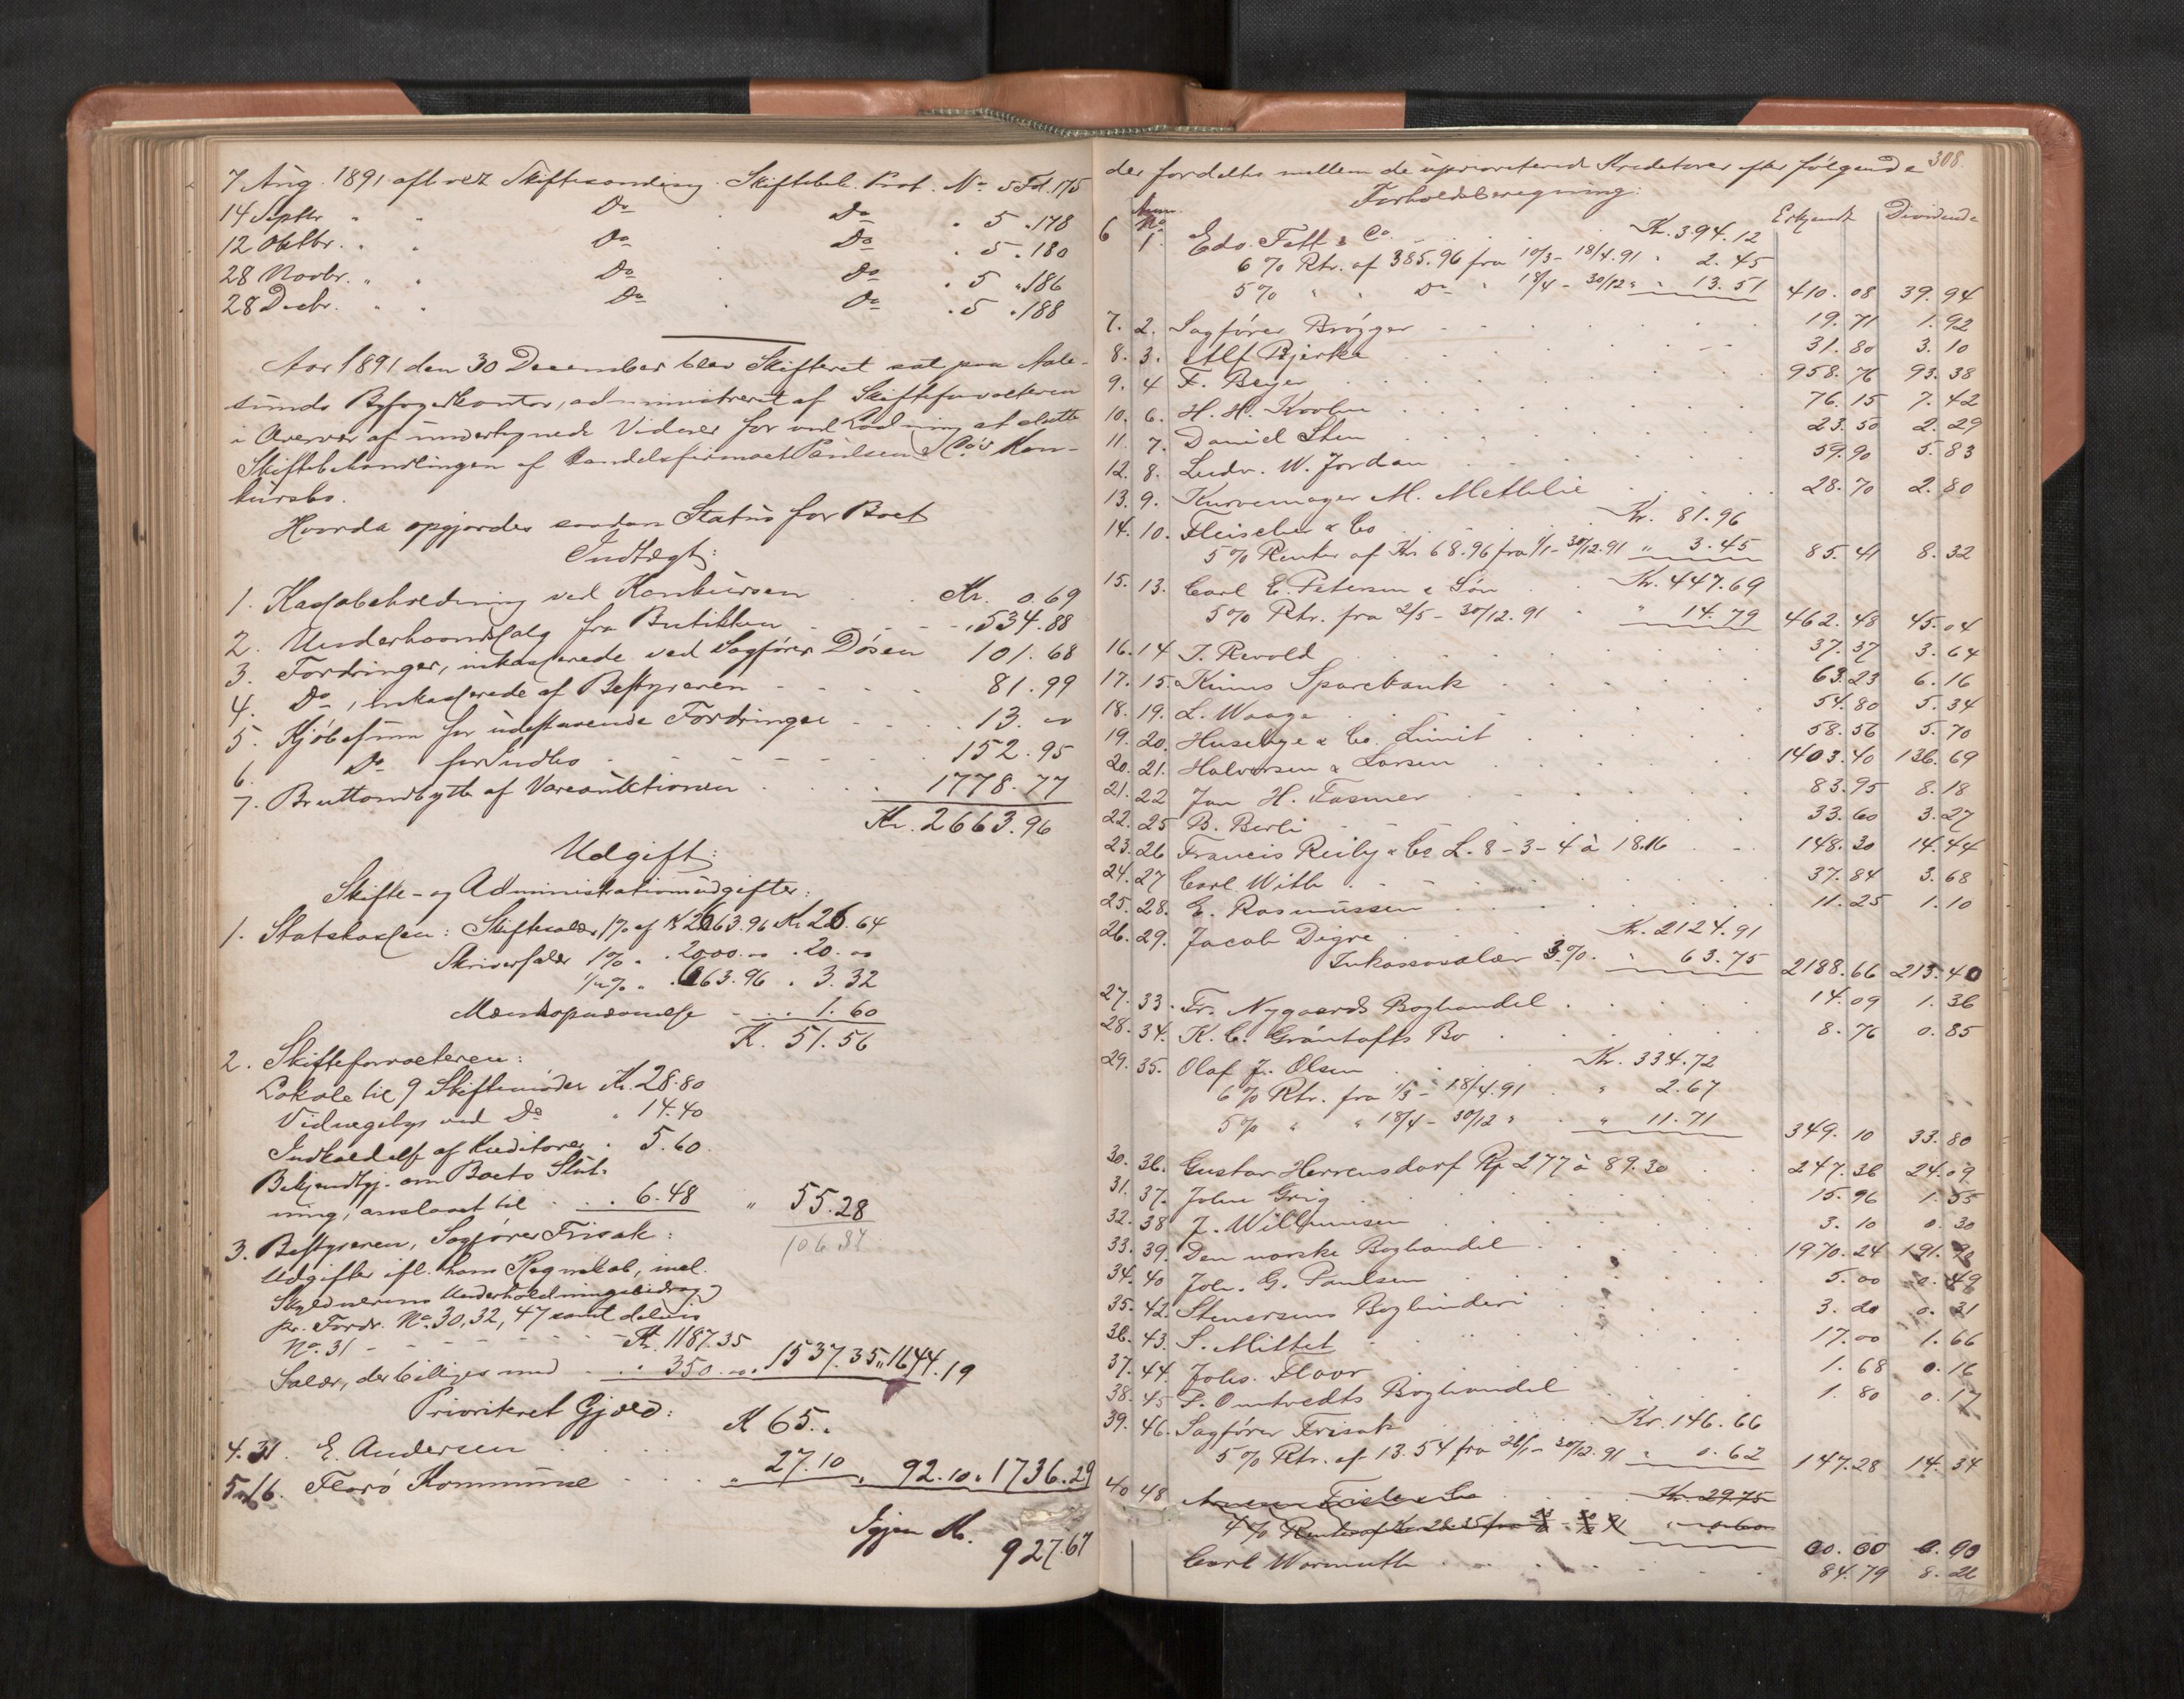 7 Aug. 1891 afholdt Skiftesamling. Skiftebeh. Prot. No 5 Fol. 175
14 Septbr. " " Do . Do " 5 . 178
12 Oktbr. " " Do Do . 5 . 180
28 Novbr. " " Do Do . 5 " 186
28 Decbr. " " Do . Do . 5 . 188
Aar 1891 den 30 December blev Skifteret sat paa Aale-
sunds Byfogedkontor, administreret af Skifteforvalteren
i Overvær af undertegnede Vidner for ved Lodning at slutte
Skiftebehandlingen af Handelsfirmaet Paulsen & Co's Kon-
kursbo.
Hvorda opgjordes saadan Status for Boet
Indtægt:
1. Kassabeholdning ved Konkursen . . Kr. 0.69
2. Underhaandssalg fra Butikken - - - - " 534.88
3. Fordringer, inkasserede ved Sagfører Døsen 101.68
4. Do , inkasserede af Bestyreren - - - - 81.99
5. Kjøbesum for udestaaende Fordringer - - - 13. "
6. Do for Indbo - - - - - - 152.95
7. Bruttoudbytte af Vareauktionen . . . . 1778.77
Kr. 2663.96
Udgift:
Skifte- og Administrationsudgifter:
1. Statskassen: Skiftesalær 1% af K 2663.96 Kr 26.64
Skriversalær 1% . . 2000. " . 20. "
1/2% " . 663.96 . 3.32
Mandsopnævnelse - . . . 1.60
K. 51.56
2. Skifteforvalteren:
Lokale til 9 Skiftemøder Kr. 28.80
Vidnegebyr ved Do " 14.40
Indkaldelse af Kreditorer . 5.60
Bekjendtgj. om Boets Slut-
ning, anslaaet til . . . 6.48 " 55.28
106.84
3. Bestyreren, Sagfører Frisak:
Udgifter ifl. hans Regnskab, incl.
Skyldnerens Underholdningsbidrag
pr. Fordr. No. 30, 32, 47 samt delvis
No. 31 - - - - - Kr. 1187.35
Salær, der billiges med . . . 350. " . 1537.35 " 1644.19
Prioriteret Gjæld:
4. 31. E. Andersen . . . . K 65. "
5. 16. Florø Kommune . . . " 27.10 " 92.10 " 1736.29
Igjen Kr. 927.67
308.
der fordeltes mellem de uprioriterede Kreditorer efter følgende
Forholdsberegning:
Anm. No. Erkjendt Dividende
6 1. Edv. Fett & Co. . . . Kr. 394.12
6% Rtr. af 385.96 fra 10/3 - 18/4.91 " 2.45
5% " " Do " 18/4 - 30/12 " " 13.51 410.08 39.94
7. 2. Sagfører Brøgger - - - - - 19.71 1.92
8. 3. Alf Bjerke . . . . 31.80 3.10
9. 4 F. Beyer . . . . . 958.76 93.38
10. 6. H. H. Koohn . . . . 76.15 7.42
11. 7. Daniel Sten . . . . 23.50 2.29
12. 8. Ludv. W. Jordan . . . . 59.90 5.83
13. 9. Kurvemager M. Methlie . . . . 28.70 2.80
14. 10. Fleischer & Co . . . Kr. 81.96
5% Renter af Kr 68.96 fra 1/1 - 30/12.91 " 3.45 85.41 8.32
15. 13. Carl E. Petersen & Søn . . Kr. 447.69
5% Rtr. fra 2/5 - 30/12.91 " " 14.79 462.48 45.04
16. 14 T. Revold . . . . 37.37 3.64
17. 15. Kinns Sparebank . . . . 63.23 6.16
18. 19. L. Waage . . . . 54.80 5.34
19. 20. Husebye & Co. Limit . . . . 58.56 5.70
20. 21. Halvorsen & Larsen . . . . 1403.40 136.69
21. 22 Jan H. Fasmer . . . . 83.95 8.18
22. 25 B. Berli . . . . 33.60 3.27
23. 26 Francis Reily & Co L. 8 - 3 - 4 à 18.16 . . 148.30 14.44
24. 27 Carl With . . . . 37.84 3.68
25. 28. E. Rasmussen . . . . 11.25 1.10
26. 29. Jacob Digre . . . Kr. 2124.91
Inkassosalær 3%. " 63.75 2188.66 213.40
27. 33. Fr. Nygaards Boghandel . . . . 14.09 1.36
28. 34. K. C. Grøntofts Bo . . . . 8.76 0.85
29. 35. Olaf J. Olsen . . . Kr. 334.72
6% Rtr. fra 1/3 - 18/4.91 . " 2.67
5% " " 18/4 - 30/12 " . " 11.71 349.10 33.80
30. 36. Gustav Herrensdorf Rp 277 à 89.30 . . 247.36 24.09
31. 37. John Grieg . . . . 15.96 1.55
32. 38 J. Willumsen . . . . 3.10 0.30
33. 39. Den norske Boghandel . . . . 1970.24 191.90
34. 40 Joh. G. Paulsen . . . . 5.00 0.49
35. 42. Stenersens Bogbinderi . . . . 3.20 0.31
36. 43. S. Mittet . . . . 17.00 1.66
37. 44. Johs. Floor . . . . 1.68 0.16
38. 45 P. Omtvedts Boghandel . . . . 1.80 0.17
39. 46. Sagfører Frisak . . . Kr. 146.66
5% Rtr. af 13.54 fra 26/1 - 30/12.91 " 0.62 147.28 14.34
40 48 & Co . . . Kr. 29.75
4% Renter af Kr 28.35 fra " 0.60 00.00 0.00
Carl Warmuth . . . . 84.79 8.26